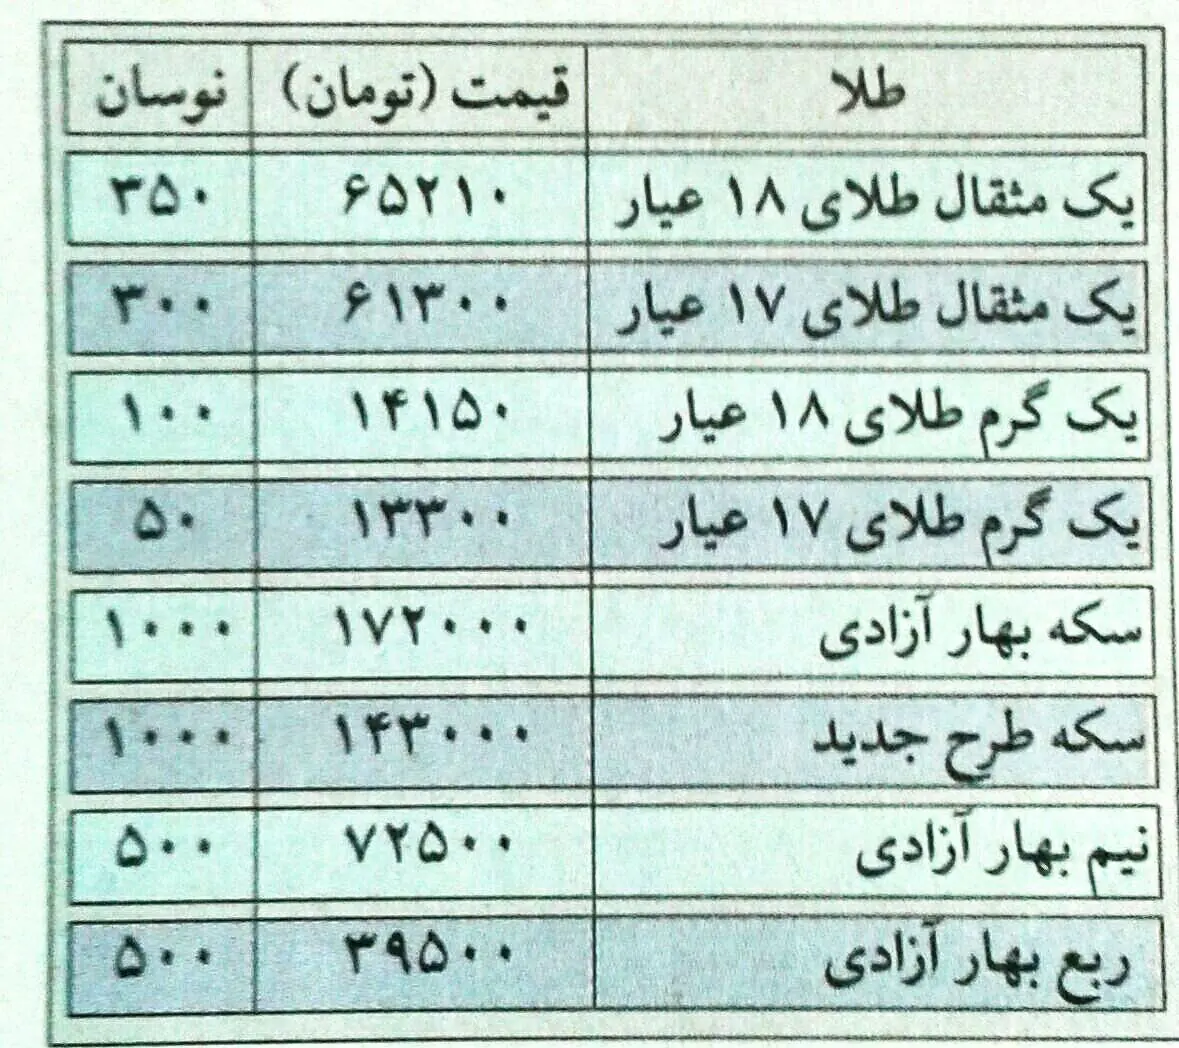 طلا قیمت (تومان) نوسان
یک مثقال طلای ۱۸ عیار ۶۵۲۱۰ ۳۵۰
یک مثقال طلای ۱۷ عیار ۶۱۳۰۰ ۳۰۰
یک گرم طلای ۱۸ عیار ۱۴۱۵۰ ۱۰۰
یک گرم طلای ۱۷ عیار ۱۳۳۰۰ ۵۰
سکه بهار آزادی ۱۷۲۰۰۰ ۱۰۰۰
سکه طرح جدید ۱۴۳۰۰۰ ۱۰۰۰
نیم بهار آزادی ۷۲۵۰۰ ۵۰۰
ربع بهار آزادی ۳۹۵۰۰ ۵۰۰